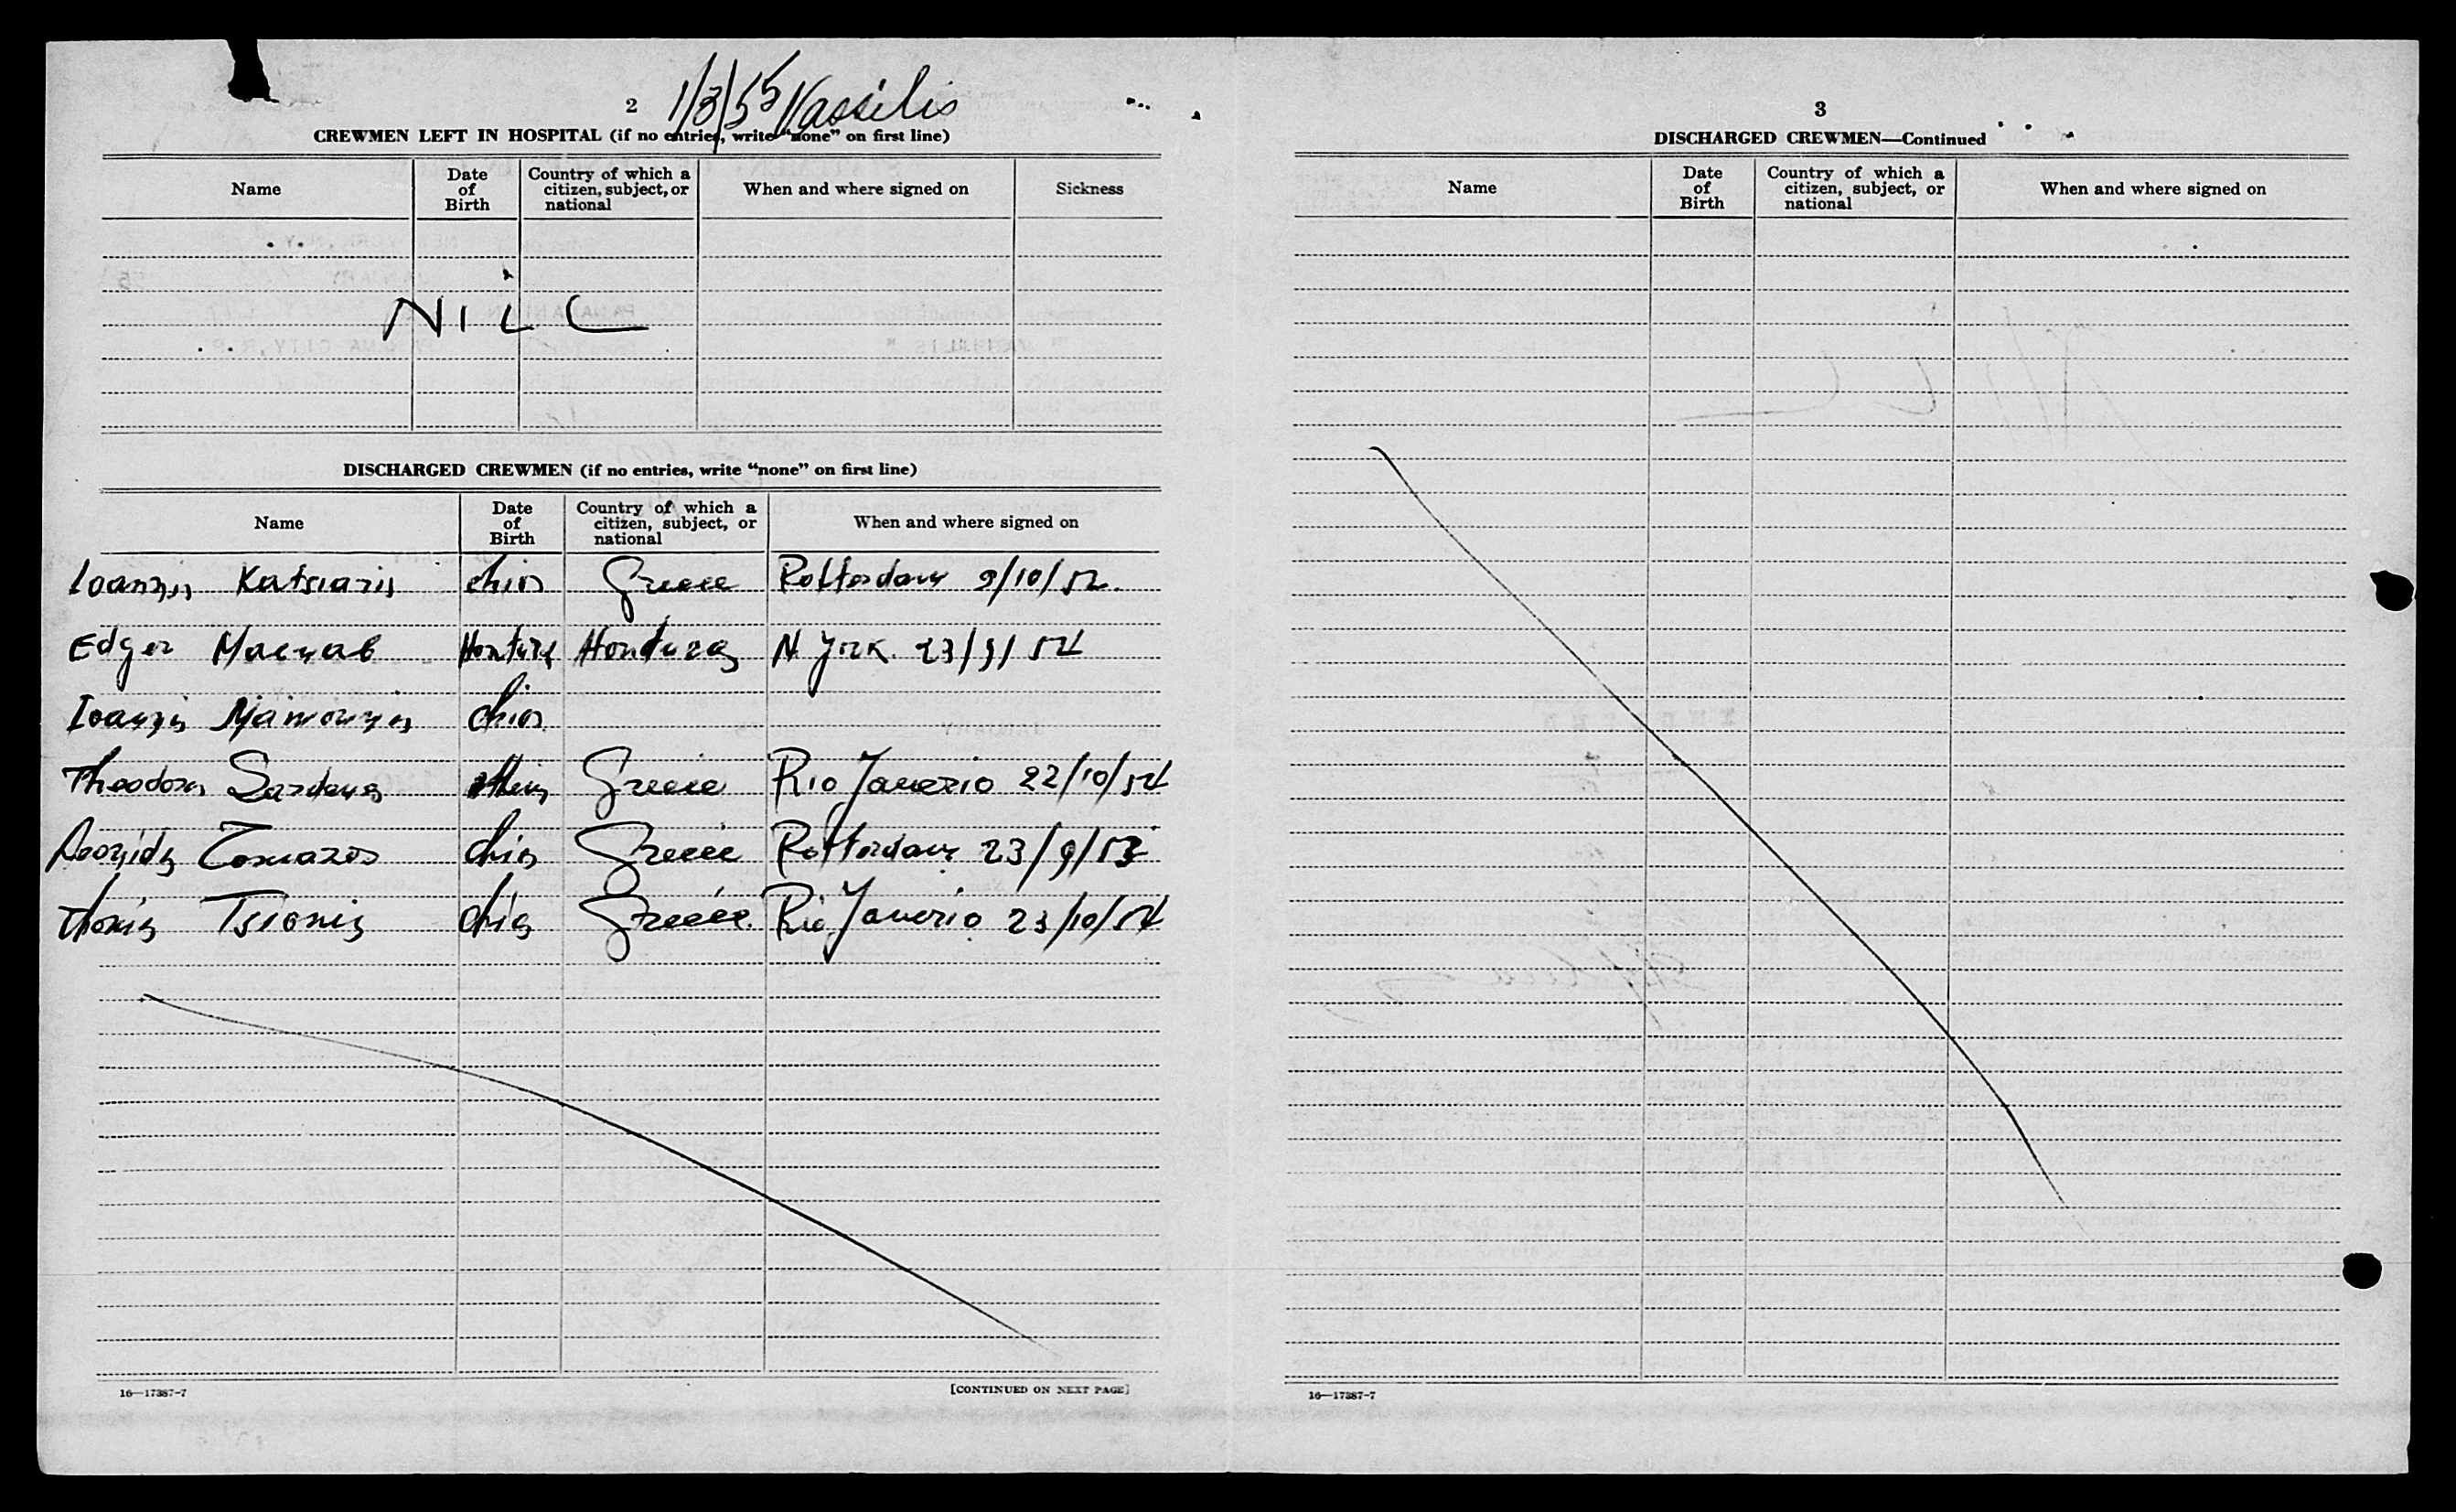 2 1/3/55 Vassilis
CREWMEN LEFT IN HOSPITAL (if no entries, write “none” on first line)
Name Date of Birth Country of which a citizen, subject, or national When and where signed on Sickness
NILL
DISCHARGED CREWMEN (if no entries, write “none” on first line)
Name Date of Birth Country of which a citizen, subject, or national When and where signed on
Ioannis Katsiaris chios Greece Rotterdam 9/10/52.
Edger Macnab Honduras N. York. 23/9/54
Ioannis chios
Theodoros Sardanis Greece Rio Janerio 22/10/54
chios Greece Rotterdam 23/9/53
Tsionis chios Greece. Rio Janerio 23/10/54
16—17387-7 [CONTINUED ON NEXT PAGE]
3
DISCHARGED CREWMEN—Continued
Name Date of Birth Country of which a citizen, subject, or national When and where signed on
16—17387-7